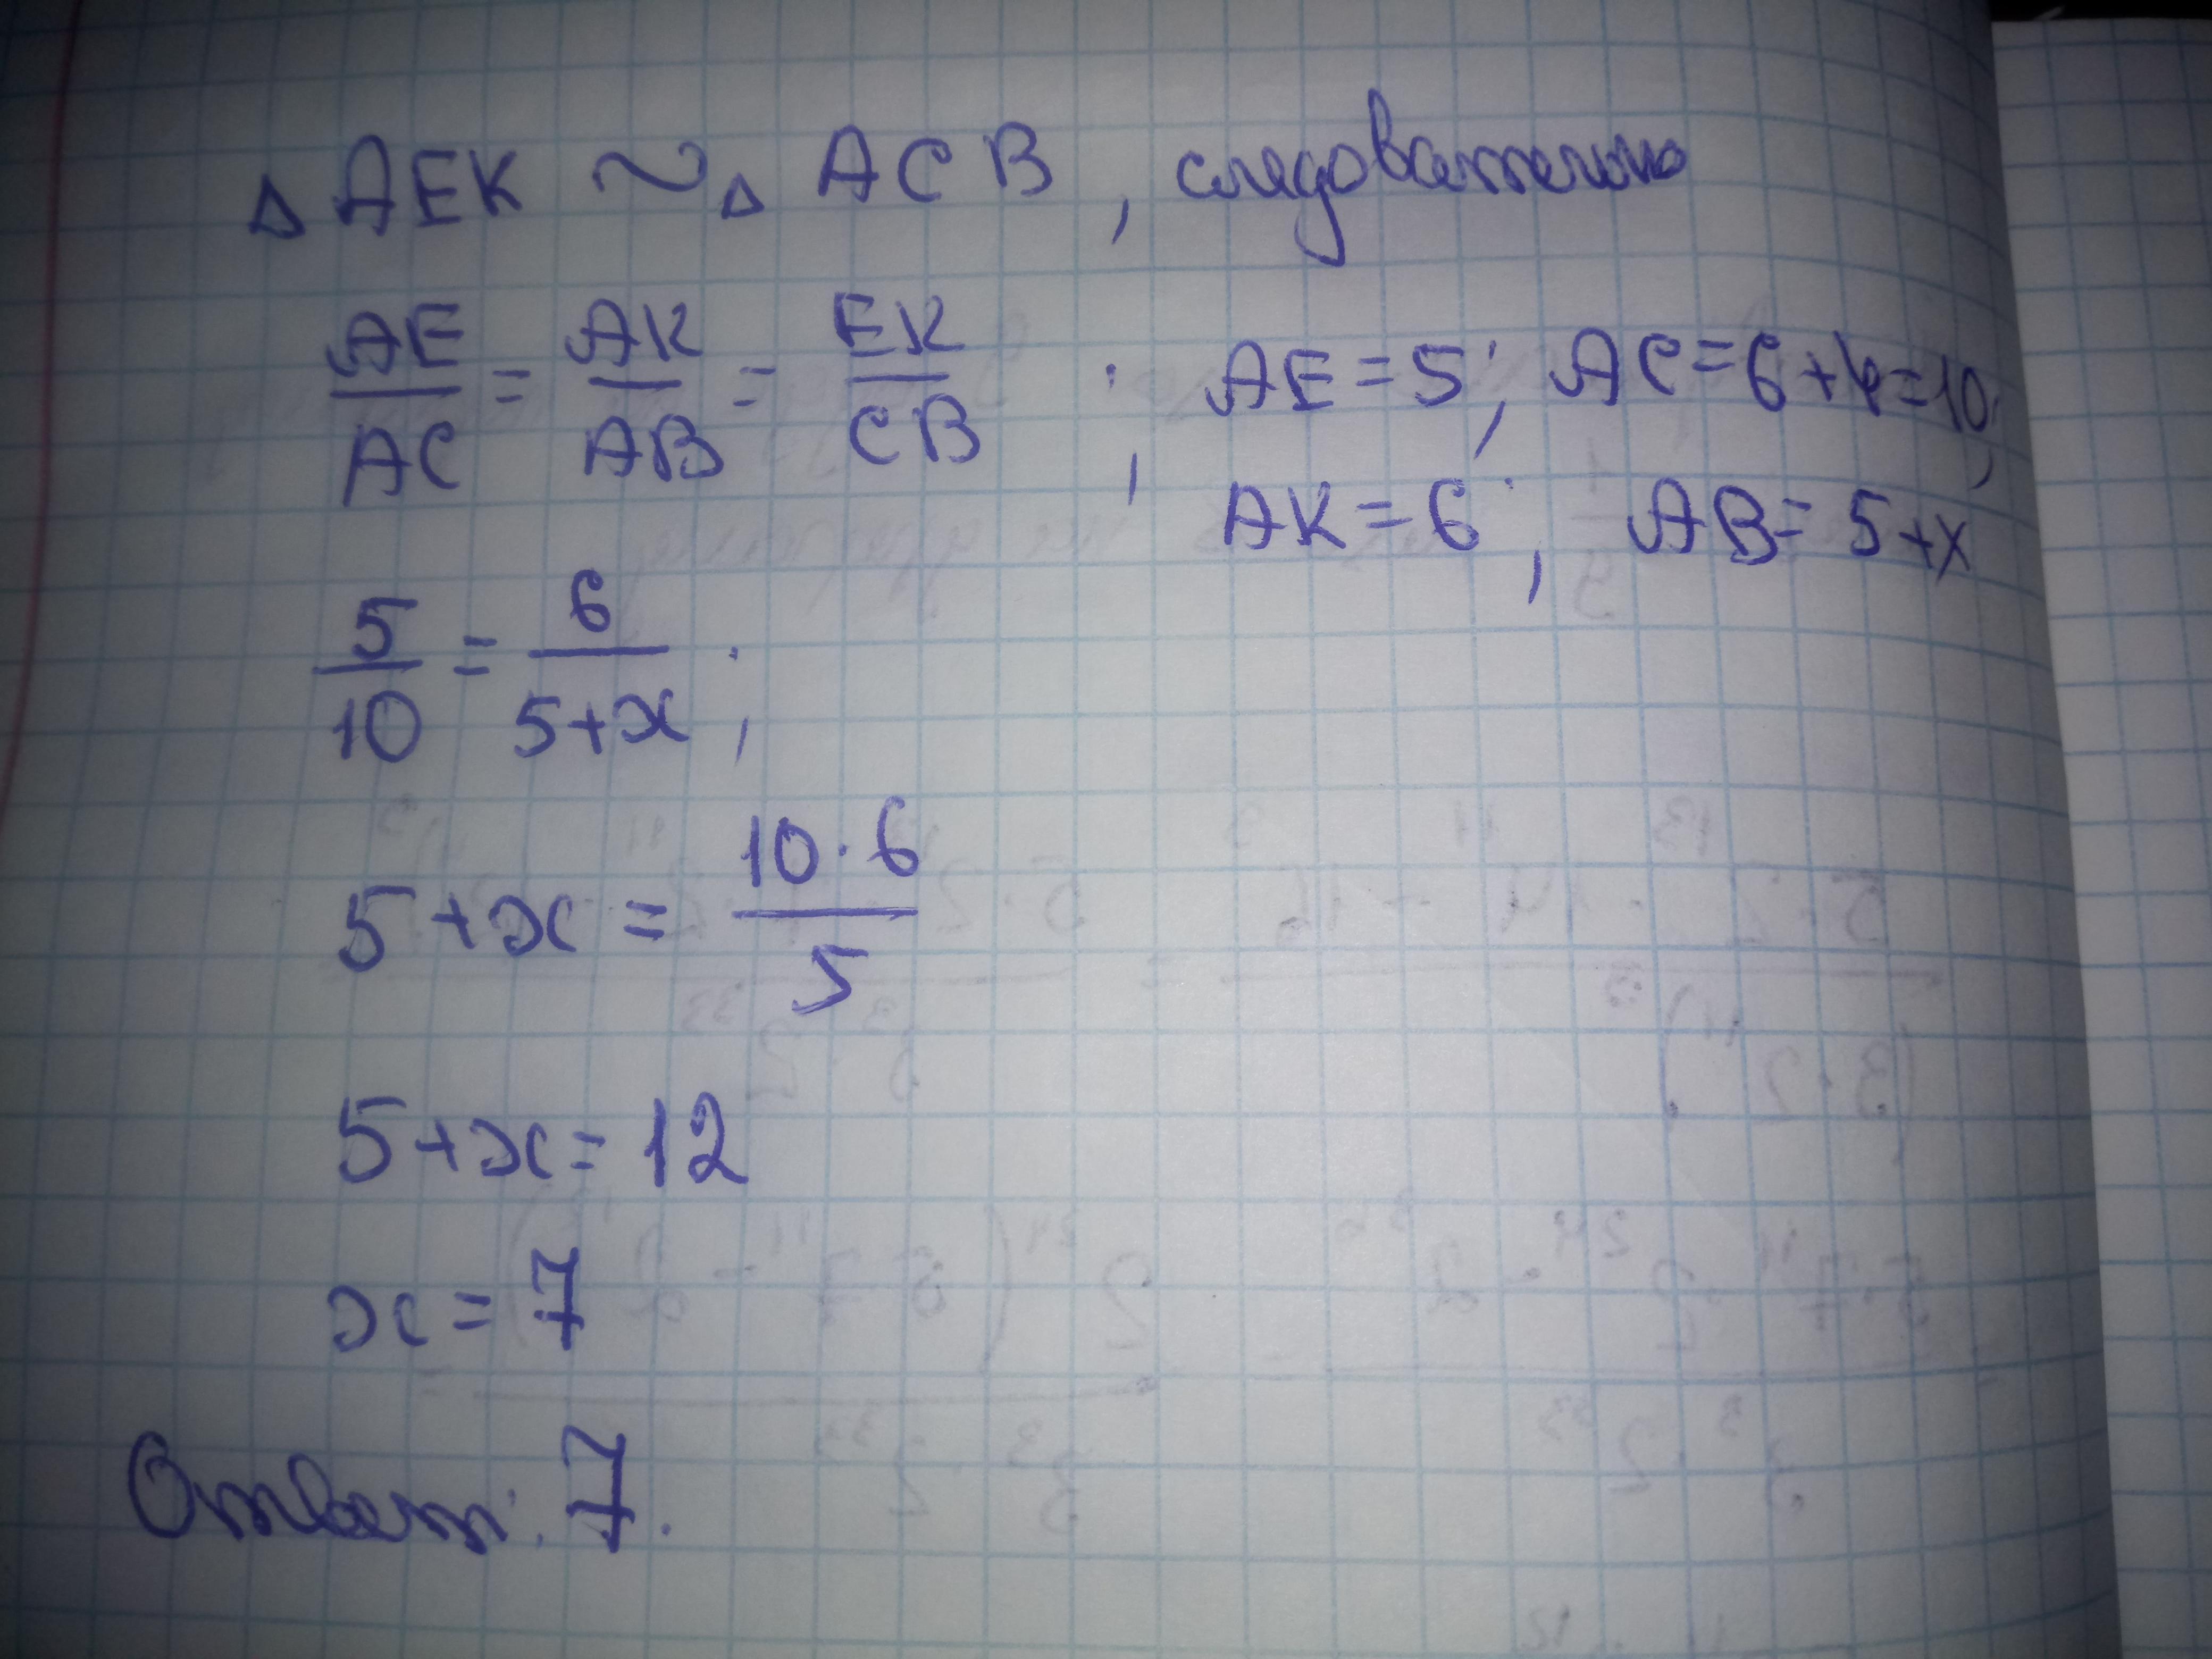 △ AEK ~ △ ACB, следовательно
AE/AC = AK/AB = EK/CB ; AE = 5; AC = 6+4=10;
AK = 6; AB = 5+x
5/10 = 6/(5+x);
5+x = (10·6)/5
5+x = 12
x = 7
Ответ: 7.